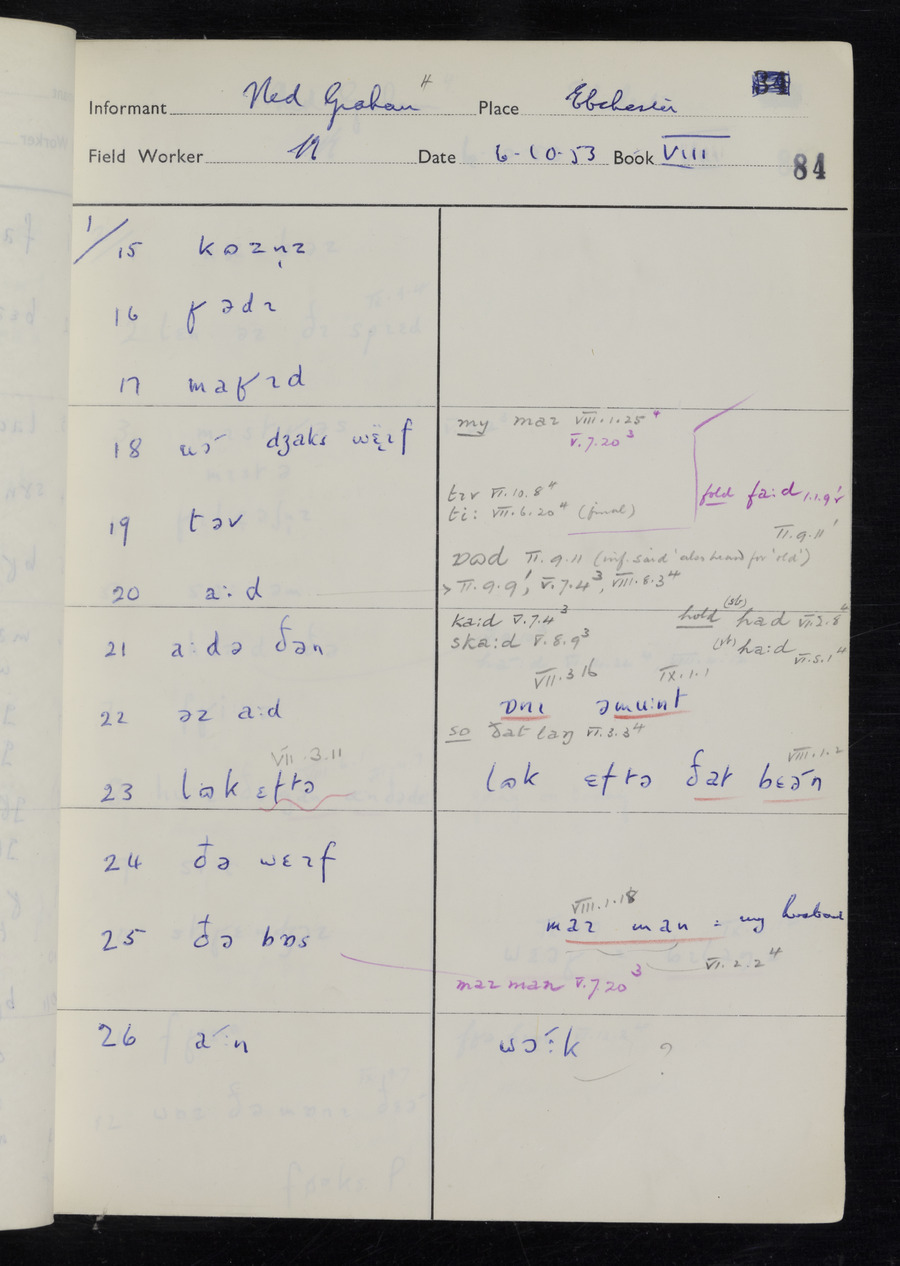 Informant Ned Graham 4 Place Ebchester
Field Worker N Date 6-10-53 Book VIII 84
1/15 kɷzn̩z
16 fədɹ
17 mafɹd
18 dʒaks wɛ̈ɹf
my maɪ VIII.1.25 4
V.7.20 3
fold fa:d 1.1.9
19 təv
tɪv VI.10.8 4
ti: VII.6.20 4 (final)
II.9.11 1
ɒɷd II.9.11 (inf. said 'also heard for 'old')
20 a:d
> II.9.9 1, V.7.4 3, VIII.8.3 4
21 a:də ðən
ka:d V.7.4 3
ska:d V.8.9 3
hold (sb) had VII.2.8 4
(vb) ha:d VI.5.1 4
22 əz a:d
VII.3.16 IX.1.1
ɒnɪ əmuːnt
so ðat laŋ VI.3.3 4
VII.3.11
23 lɷk ɛftə
VIII.1.2
lɷk ɛftə ðat bɛən
24 ðə wɛɹf
25 ðə bɒs
VIII.1.18
maɪ man = my husband
VI.2.2 4
maɪ man V.7.20 3
26 a:n
wɔ:k ?